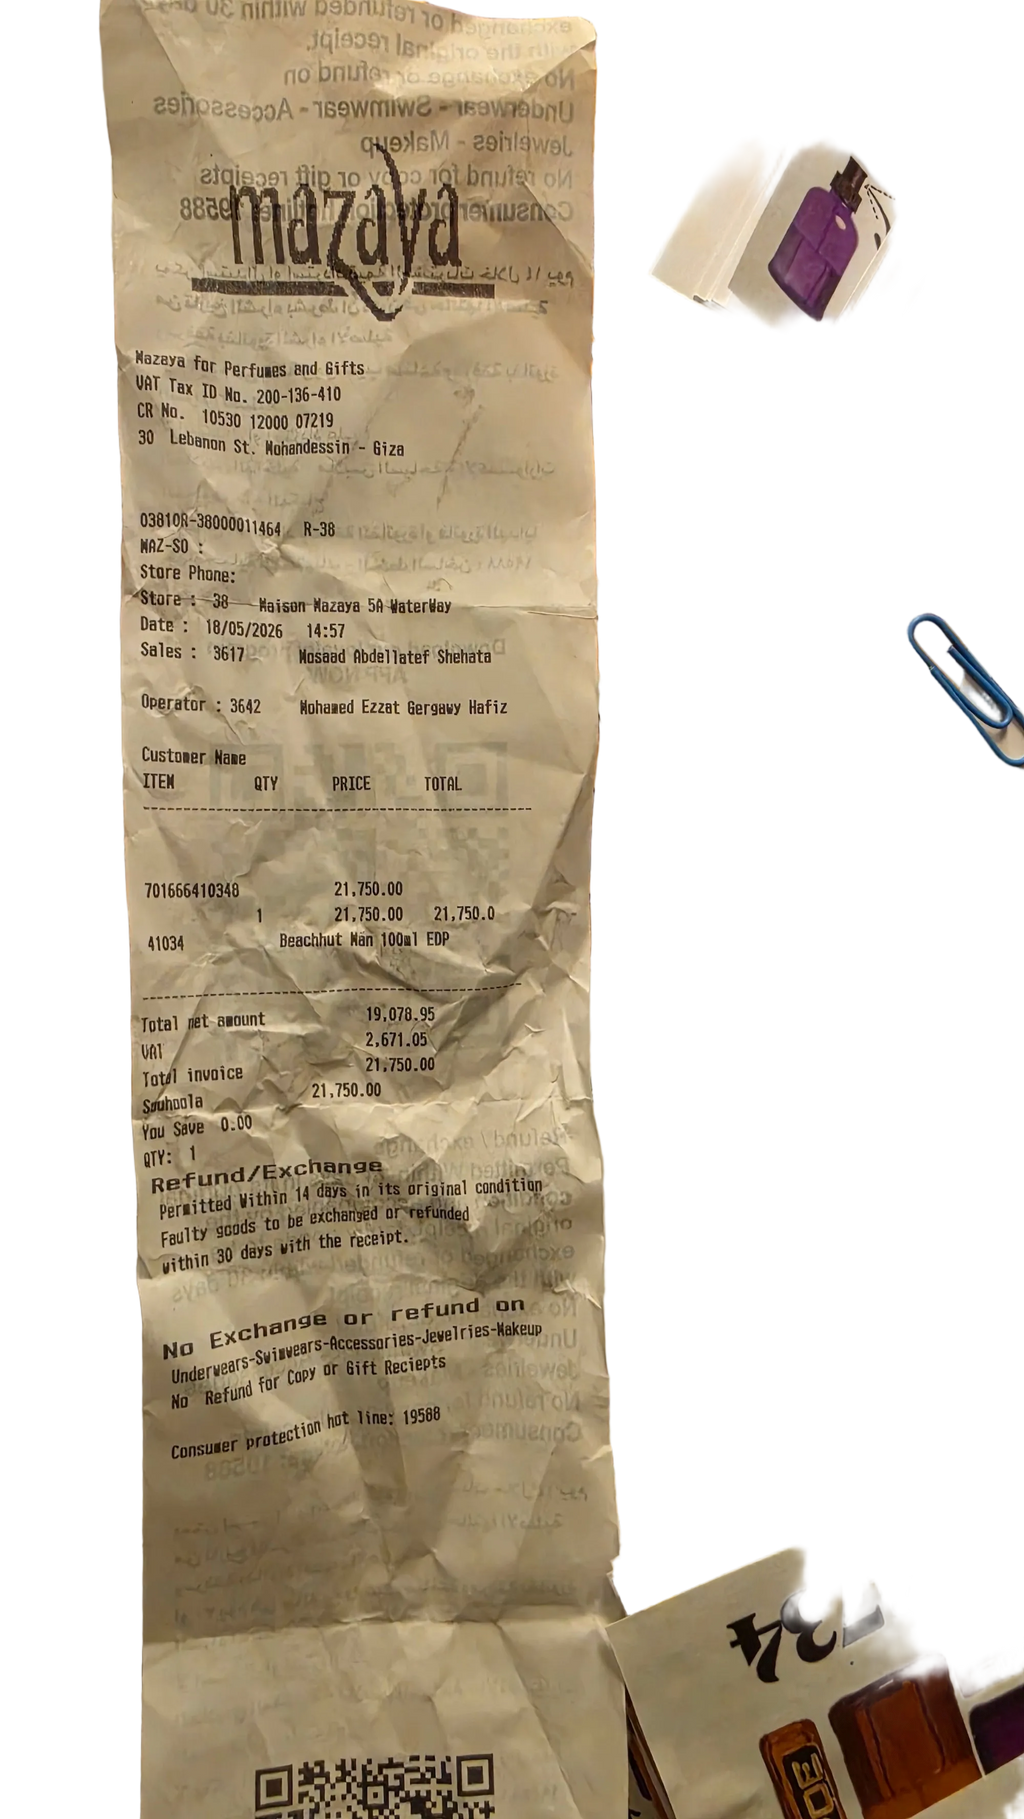 mazaya
Mazaya for Perfumes and Gifts
VAT Tax ID No. 200-136-410
CR No. 10530 12000 07219
30 Lebanon St. Mohandessin - Giza
03810R-38000011464 R-38
MAZ-SO :
Store Phone:
Store : 38 Maison Mazaya 5A WaterWay
Date : 18/05/2026 14:57
Sales : 3617 Mosaad Abdellatef Shehata
Operator : 3642 Mohamed Ezzat Gergawy Hafiz
Customer Name
ITEM QTY PRICE TOTAL
701666410348 21,750.00
1 21,750.00 21,750.0
41034 Beachhut Man 100ml EDP
Total net amount 19,078.95
VAT 2,671.05
Total invoice 21,750.00
Souhoola 21,750.00
You Save 0.00
QTY: 1
Refund/Exchange
Permitted Within 14 days in its original condition
Faulty goods to be exchanged or refunded
within 30 days with the receipt.
No Exchange or refund on
Underwears-Swimwears-Accessories-Jewelries-Makeup
No Refund for Copy or Gift Reciepts
Consumer protection hot line: 19588
34